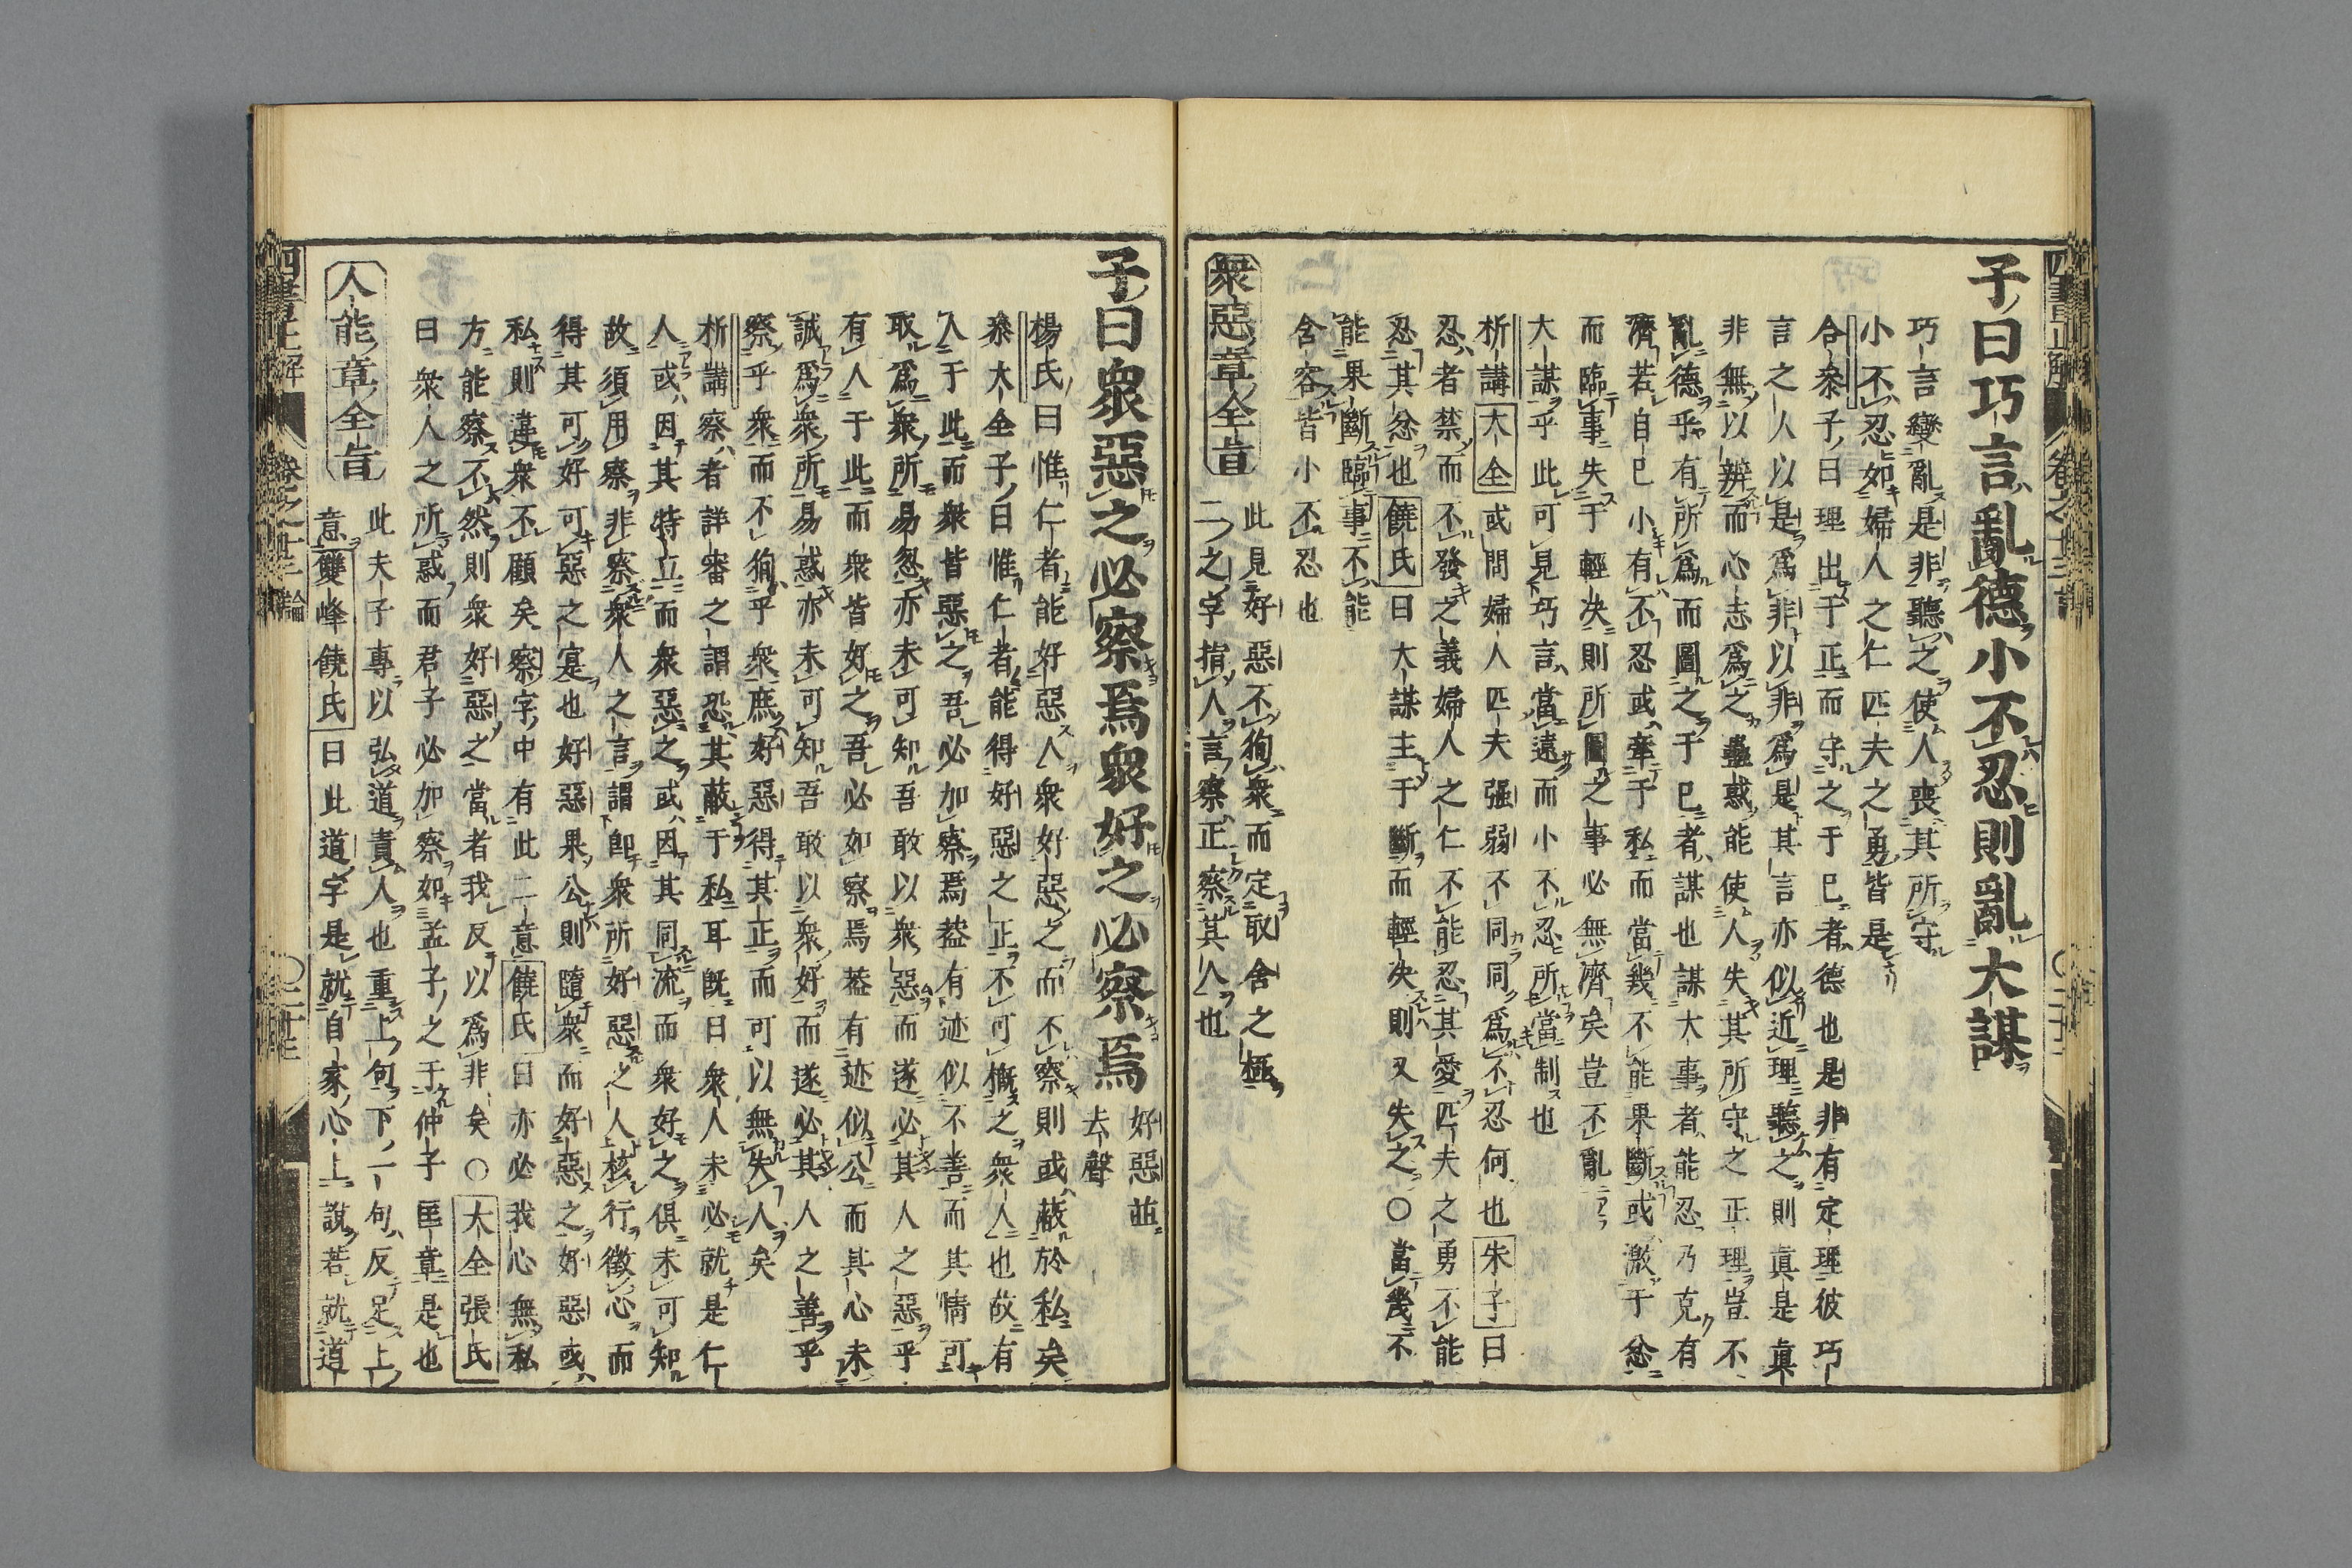 子曰巧言亂德小不忍則亂大謀
巧言變亂是非聽之使人喪其所守
小不忍如婦人之仁匹夫之勇皆是
合參子曰理出于正而守之于已者德也是非有定理彼巧
言之人以是爲非以非爲是其言亦似近理聽之則眞是眞
非無以辨而心志爲之蠱惑能使人失其所守之正理豈不
亂德乎有所爲而圖之于已者謀也謀大事者能忍乃克有
濟若自已小有不忍或牽于私而當幾不能果斷或激于忿
而臨事失于輕决則所圖之事必無濟矣豈不亂
大謀乎此可見巧言當遠而小不忍所當制也
析講大全或問婦人匹夫强弱不同同爲不忍何也朱子曰
忍者禁而不發之義婦人之仁不能忍其愛匹夫之勇不能
忍其忿也饒氏曰大謀主于斷而輕决則又失之〇當幾不
能果斷臨事不能
含容皆小不忍也
衆惡章全旨
此見好惡不狥衆而定取舍之極
二之字指人言察正察其人也
子曰衆惡之必察焉衆好之必察焉
好惡並
去聲
楊氏曰惟仁者能好惡人衆好惡之而不察則或蔽於私矣
叅大全子曰惟仁者能得好惡之正不可槪之衆人也故有
人于此而衆皆惡之吾必加察焉葢有迹似不善而其情可
取爲衆所易忽亦未可知吾敢以衆惡而遂必其人之惡乎
有人于此而衆皆好之吾必如察焉葢有迹似公而其心未
誠爲衆所易惑亦未可知吾敢以衆好而遂必其人之善乎
察乎衆而不狥乎衆庶好惡得其正而可以無失人矣
析講察者詳審之謂恐其蔽于私耳旣曰衆人未必就是仁
人或因其特立而衆惡之或因其同流而衆好之俱未可知
故須用察非察衆人之言謂卽衆所好惡之人核行徵心而
得其可好可惡之寔也好惡果公則隨衆而好惡之好惡或
私則違衆不顧矣察字中有此二意饒氏曰亦必我心無私
方能察不然則衆好惡之當者我反以爲非矣〇大全張氏
曰衆人之所惑而君子必加察如孟子之于仲子匡章是也
人能章全旨
此夫子專以弘道責人也重上句下一句反足上
意雙峰饒氏曰此道字是就自家心上說若就道
四書正解
卷之十三論